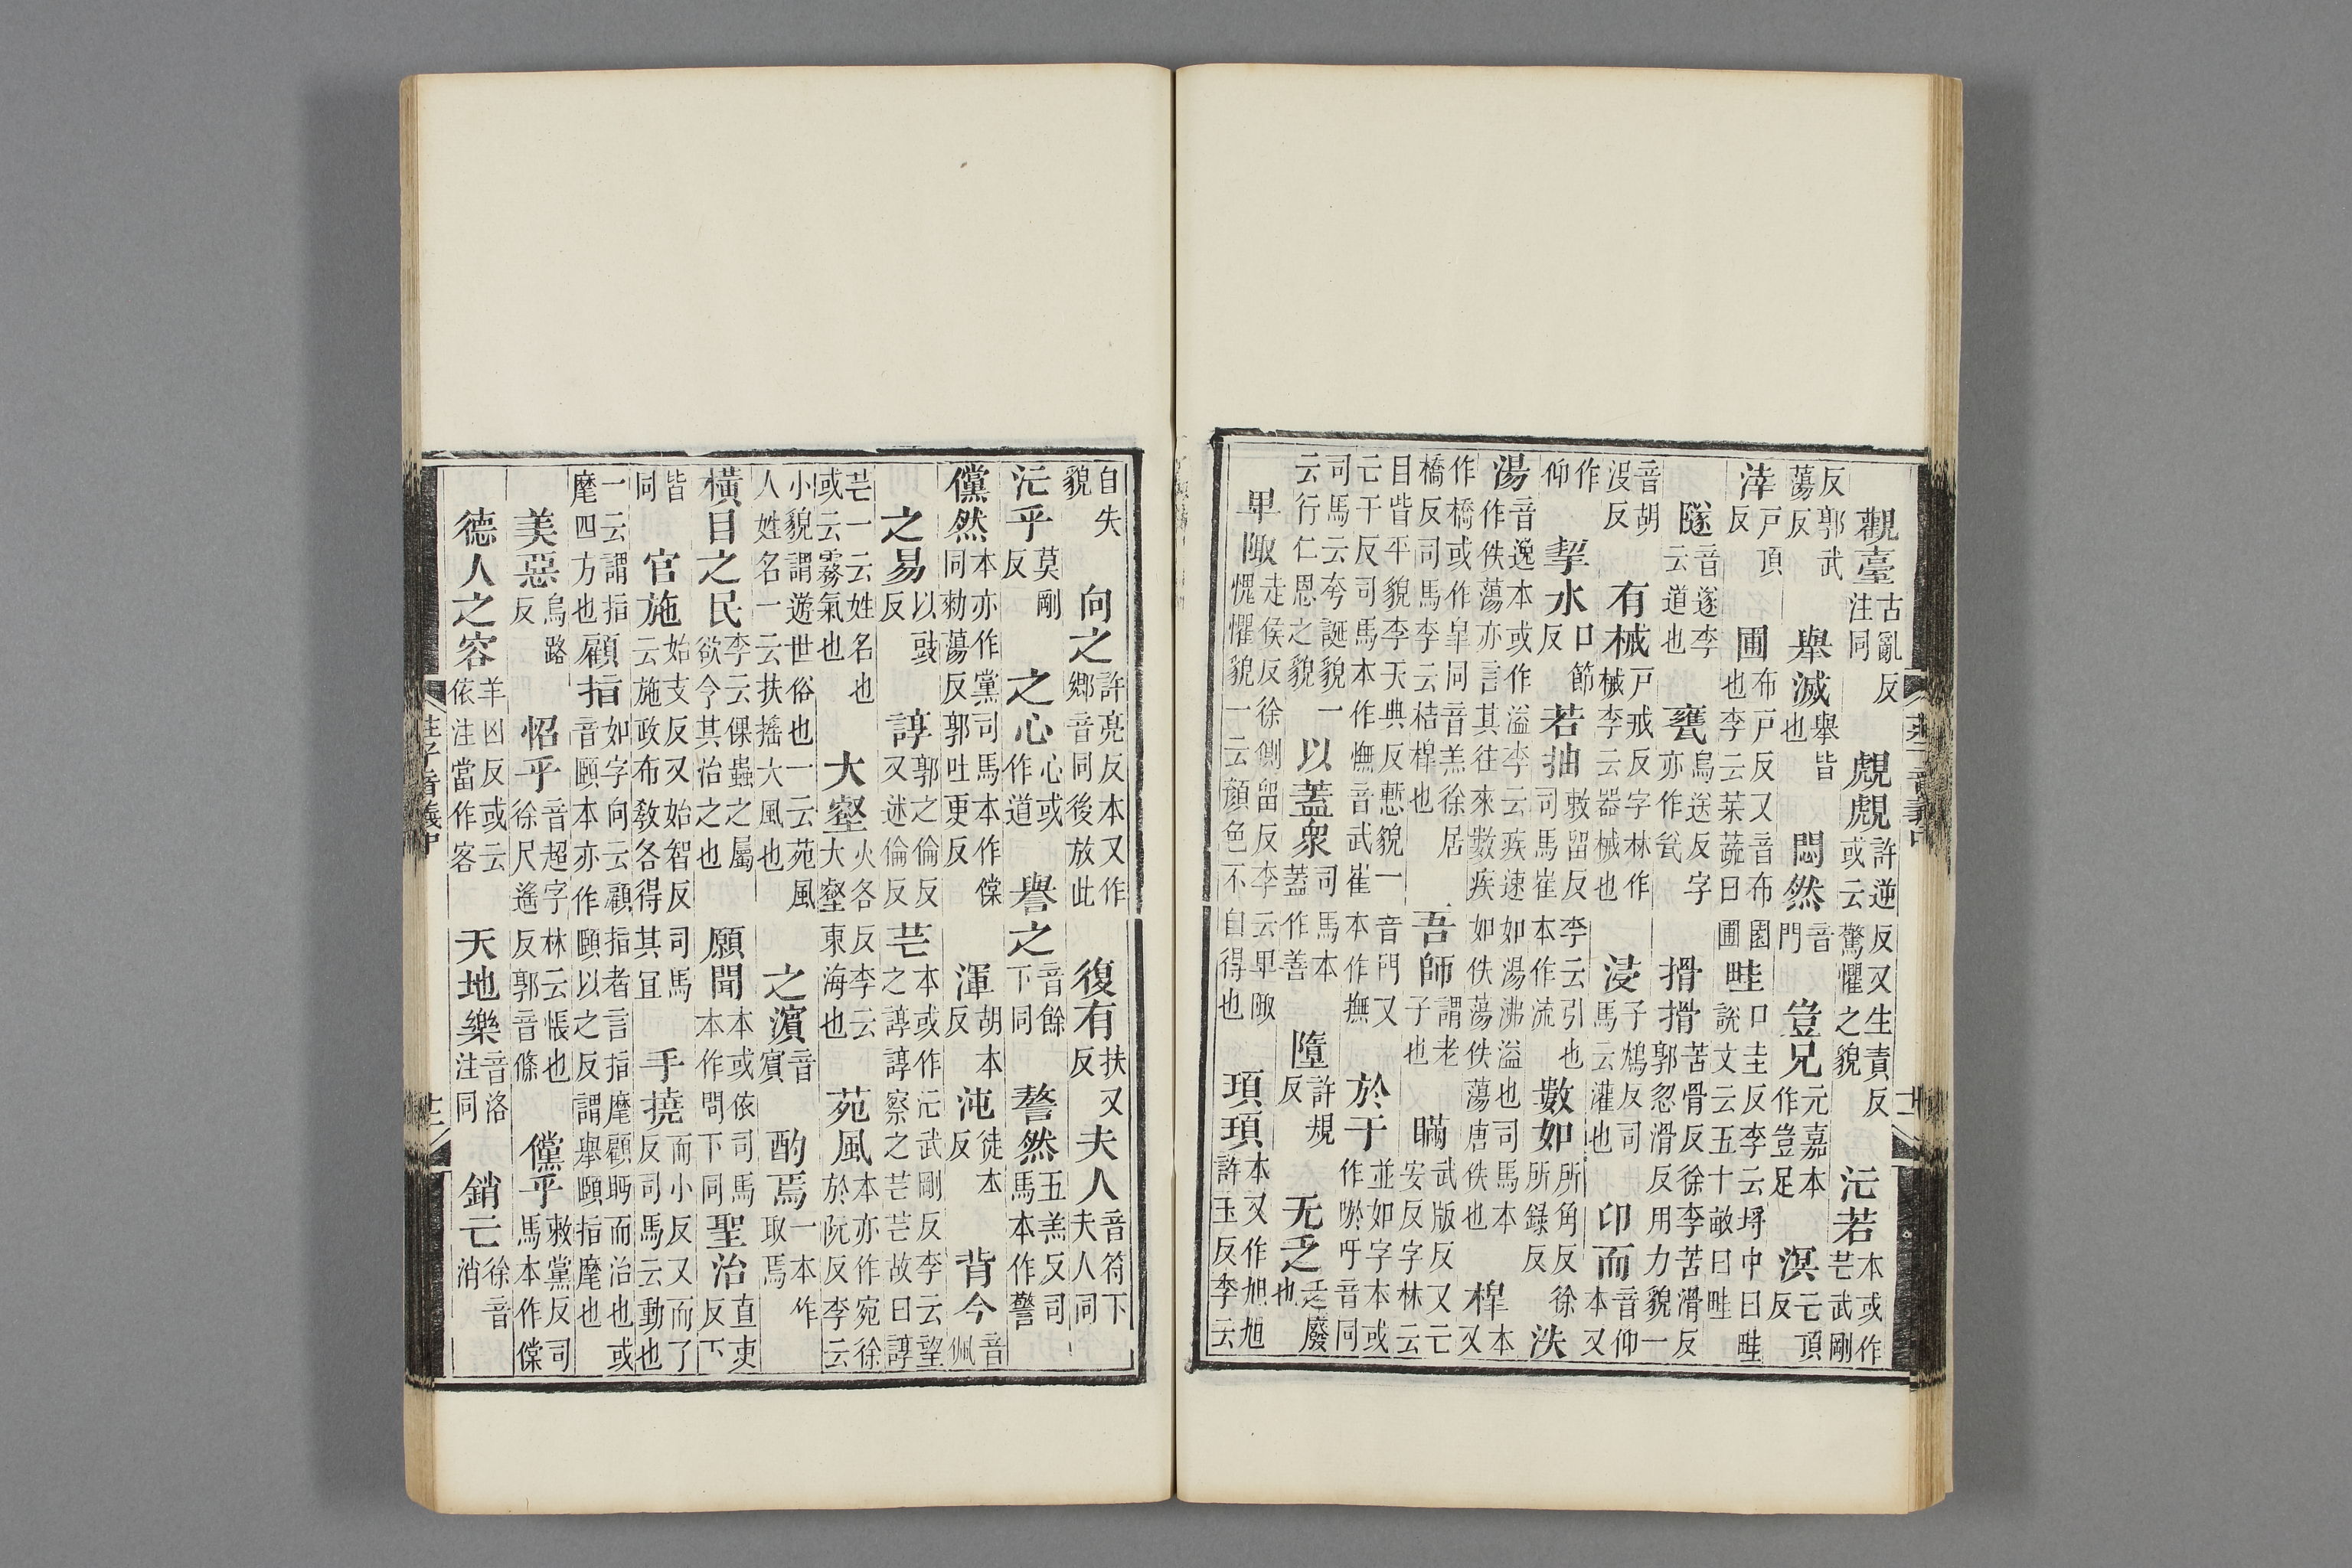 觀臺古亂反注同覤覤許逆反又生責反或云驚懼之貌汒若本或作芒武剛
反郭武蕩反舉滅舉皆也悶然音門豈兄元嘉本作豈足溟亡頂反
涬戶頂反圃布戶反又音布園也李云菜蔬曰圃畦口圭反李云埒中曰畦說文云五十畝曰畦
隧音遂李云道也甕烏送反字亦作瓮搰搰苦骨反徐李苦滑反郭忽滑反用力貌一
音胡沒反有械戶戒反字林作械李云器械也浸子鴆反司馬云灌也卬而音仰本又
作仰挈水口節反若抽敕留反李云引也司馬崔本作流數如所角反徐所錄反泆
湯音逸本或作溢李云疾速如湯沸溢也司馬本作佚蕩亦言其往來數疾如佚蕩佚蕩唐佚也槔本又
作橋或作皐同音羔徐居橋反司馬李云桔槔也吾師謂老子也瞞武版反又亡安反字林云
目眥平貌李天典反慙貌一音門又亡干反司馬本作憮音武崔本作撫於于並如字本或作唹吁音同
司馬云夸誕貌一云行仁恩之貌以蓋衆司馬本蓋作善墮許規反无乏乏廢也
卑陬走侯反徐側留反李云卑陬愧懼貌一云顏色不自得也頊頊本又作旭旭許玉反李云
自失貌向之許亮反本又作鄉音同後放此復有扶又反夫人音符下夫人同
汒乎莫剛反之心心或作道譽之音餘下同謷然五羔反司馬本作警
儻然本亦作黨司馬本作㒓同勑蕩反郭吐更反渾胡本反沌徒本反背今音佩
之易以豉反諄郭之倫反又述倫反芒本或作汒武剛反李云望之諄諄察之芒芒故曰諄
芒一云姓名也或云霧氣也大壑火各反李云大壑東海也苑風本亦作宛徐於阮反李云
小貌謂遊世俗也一云苑風人姓名一云扶搖大風也之濱音賓酌焉一本作取焉
橫目之民李云倮蟲之屬欲令其治之也願聞本或依司馬本作問下同聖治直吏反下
皆同官施始支反又始智反司馬云施政布敎各得其宜手撓而小反又而了反司馬云動也
一云謂指麾四方也顧指如字向云顧指者言指麾顧眄而治也或音頤本亦作頤以之反謂舉頤指麾也
美惡烏路反怊乎音超字林云悵也徐尺遙反郭音條儻乎敕黨反司馬本作㒓
德人之容羊凶反或云依注當作客天地樂音洛注同銷亡徐音消